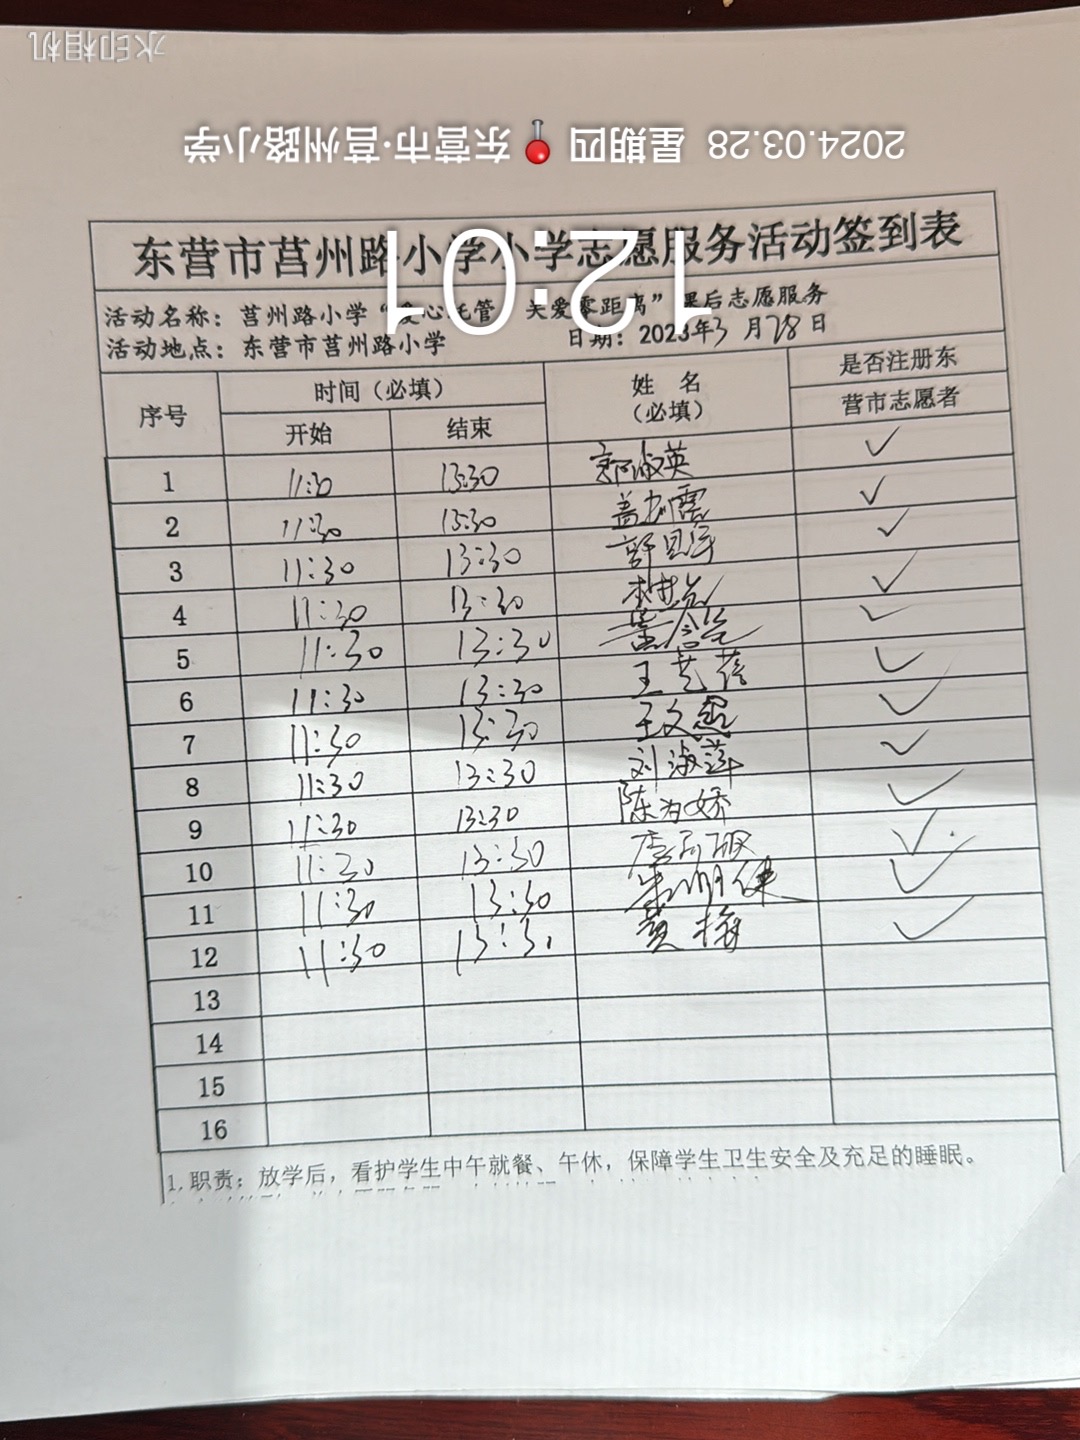 水印相机
2024.03.28 星期四 东营市·莒州路小学
12:01
东营市莒州路小学小学志愿服务活动签到表
活动名称：莒州路小学“爱心托管 关爱零距离”课后志愿服务
活动地点：东营市莒州路小学 日期：2023年3月28日
序号 时间（必填） 姓名（必填） 是否注册东营市志愿者
开始 结束
1 11:30 13:30 郭淑英 ✓
2 11:30 13:30 盖 ✓
3 11:30 13:30 ✓
4 11:30 13:30 ✓
5 11:30 13:30 ✓
6 11:30 13:30 王艺蓓 ✓
7 11:30 13:30 王文 ✓
8 11:30 13:30 刘淑萍 ✓
9 11:30 13:30 陈为娇 ✓
10 11:30 13:30 ✓
11 11:30 13:30 朱明健 ✓
12 11:30 13:30 黄梅 ✓
13
14
15
16
1.职责：放学后，看护学生中午就餐、午休，保障学生卫生安全及充足的睡眠。